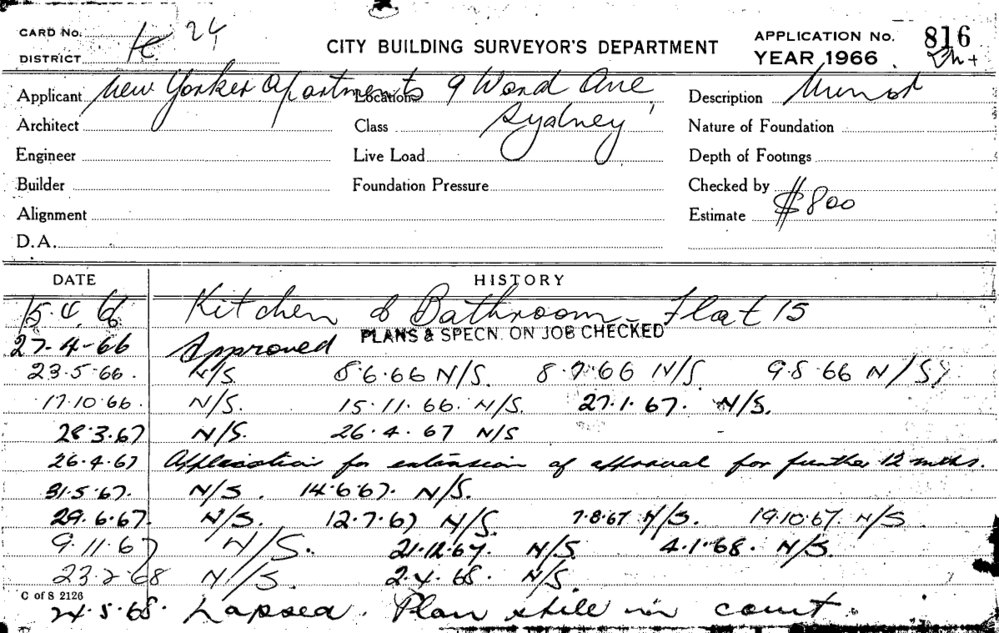 CARD No. K 24
DISTRICT
CITY BUILDING SURVEYOR'S DEPARTMENT
APPLICATION No. 816
YEAR 1966
Applicant New Yorker Apartments Location 9 Ward Ave, Description
Architect Class Sydney Nature of Foundation
Engineer Live Load Depth of Footings
Builder Foundation Pressure Checked by
Alignment Estimate $800
D.A.
DATE HISTORY
15.4.66 Kitchen & Bathroom - Flat 15
PLANS & SPECN. ON JOB CHECKED
27-4-66 Approved
23.5.66. N/S. 8.6.66 N/S. 8.7.66 N/S 9.8.66 N/S
17.10.66. N/S. 15.11.66. N/S. 27.1.67. N/S.
28.3.67 N/S. 26.4.67 N/S
26.4.67 Application for extension of approval for further 12 mths.
31.5.67. N/S. 14.6.67. N/S.
29.6.67 N/S. 12.7.67 N/S. 7.8.67 N/S. 19.10.67. N/S
9.11.67 N/S. 21.12.67. N/S. 4.1.68. N/S.
23.2.68 N/S. 2.4.68. N/S.
C of S 2126
24.5.68. Lapsed. Plan still in court.